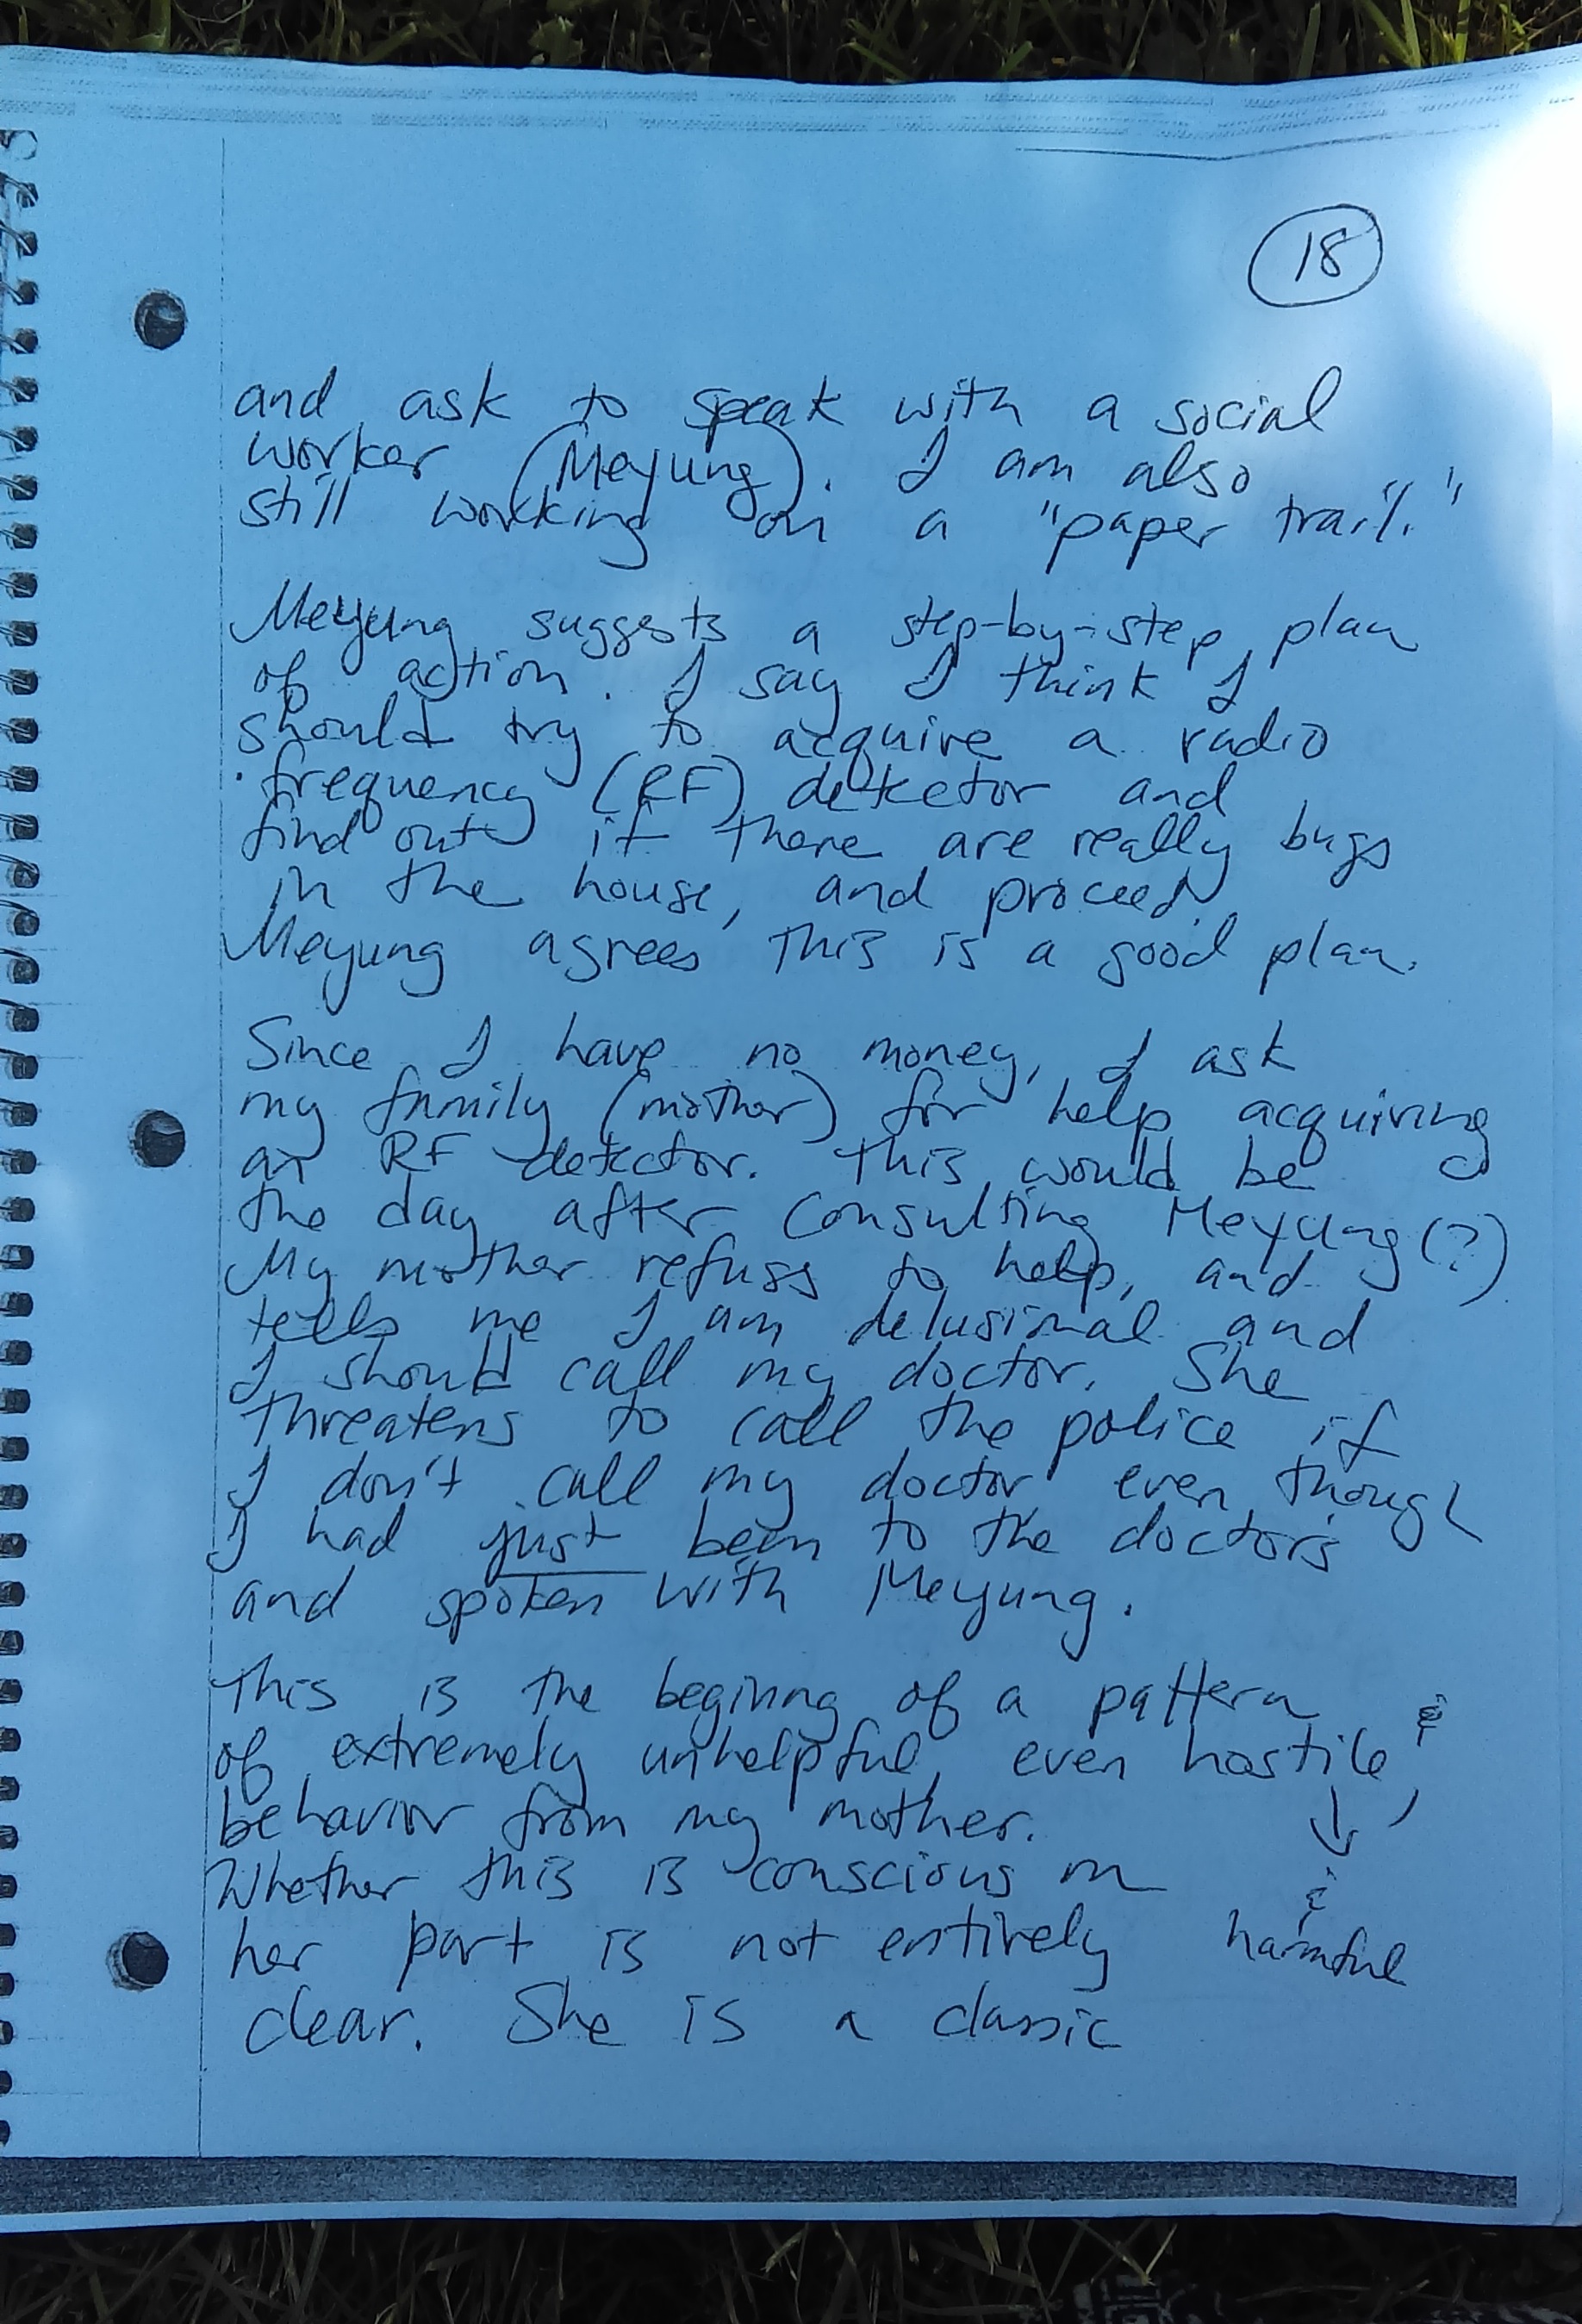 18
and ask to speak with a social
worker (Meyung). I am also
still working on a "paper trail."
Meyung suggests a step-by-step plan
of action. I say I think I
should try to acquire a radio
frequency (RF) detector and
find out if there are really bugs
in the house, and proceed.
Meyung agrees this is a good plan.
Since I have no money, I ask
my family (mother) for help acquiring
an RF detector. This would be
the day after consulting Meyung (?)
My mother refuses to help, and
tells me I am delusional and
I should call my doctor. She
threatens to call the police if
I don't call my doctor even though
I had just been to the doctors
and spoken with Meyung.
This is the begining of a pattern
of extremely unhelpful, even hostile, &
behavior from my mother.
Whether this is conscious on
her part is not entirely
clear. She is a classic
& harmful